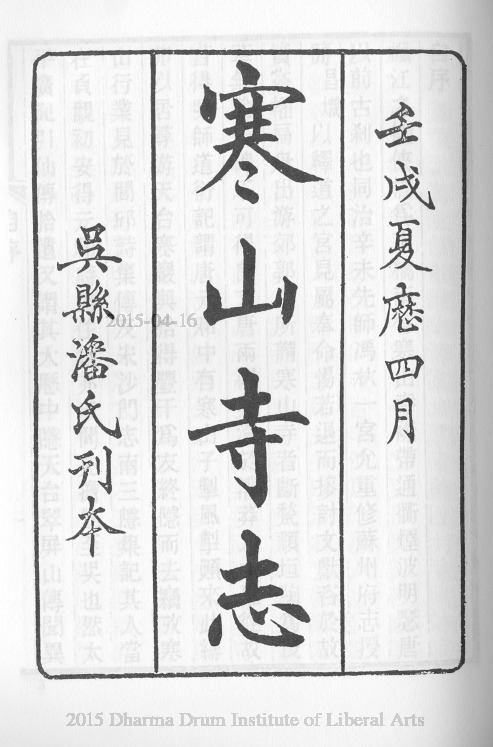 壬戌夏厯四月
寒山寺志
吳縣潘氏刊本
2015-04-16
2015 Dharma Drum Institute of Liberal Arts